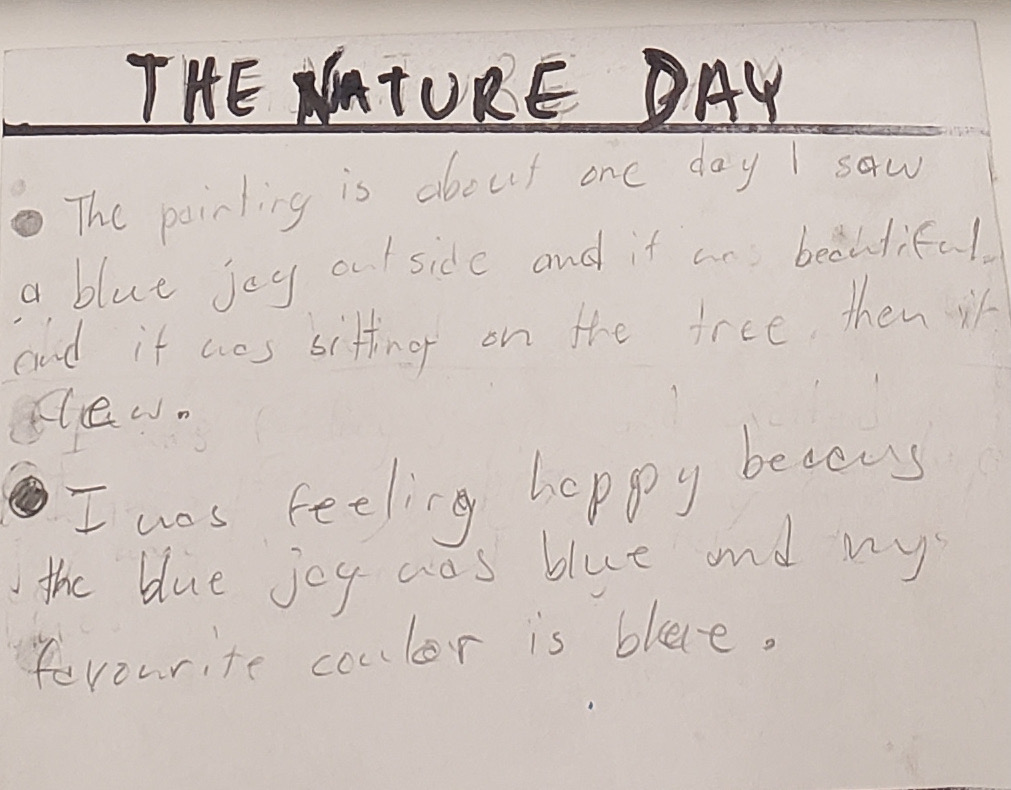 THE NATURE DAY
The painting is about one day I saw
a blue jay outside and it was beautiful.
and it was sitting on the tree. then it
flew.
I was feeling happy becaus
the blue jay was blue and my
favourite couler is blue.